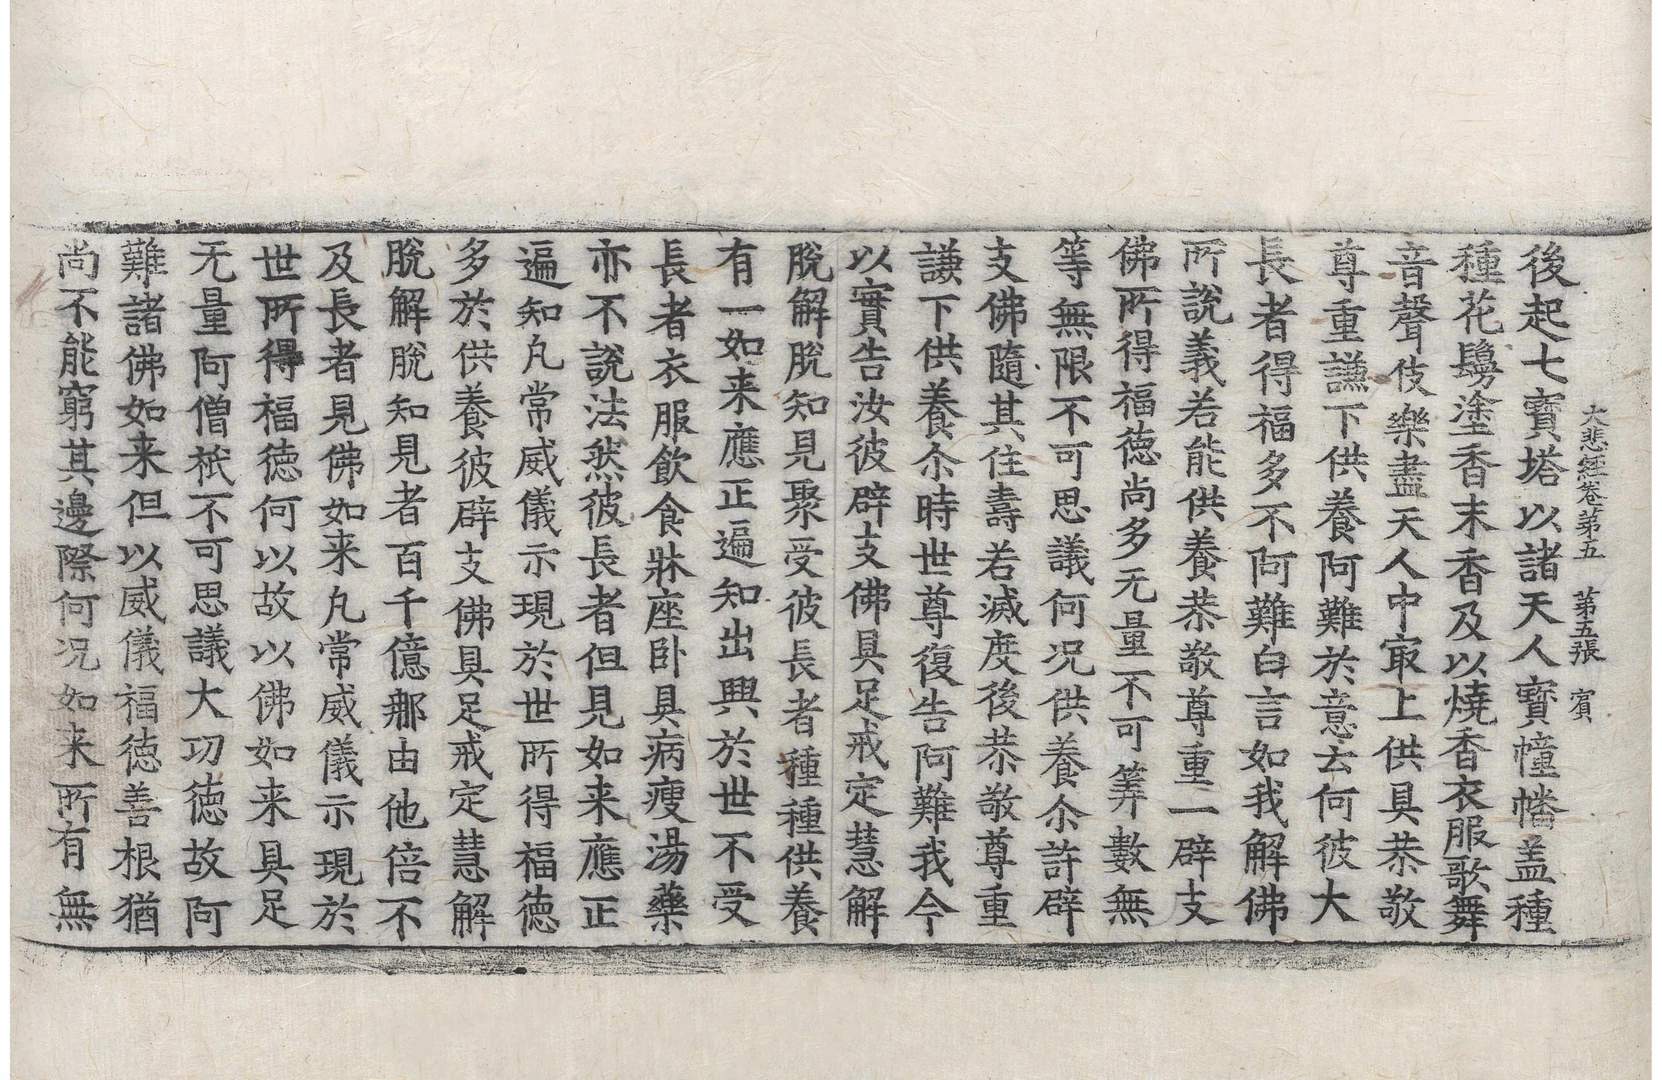 大悲經卷第五　第五張　賔
後起七寶塔以諸天人寶幢幡盖種
種花鬘塗香末香及以燒香衣服歌舞
音聲伎樂盡天人中冣上供具恭敬
尊重謙下供養阿難於意云何彼大
長者得福多不阿難白言如我解佛
所說義若能供養恭敬尊重一辟支
佛所得福德尚多无量不可筭數無
等無限不可思議何况供養尒許辟
支佛隨其住壽若滅度後恭敬尊重
謙下供養尒時世尊復告阿難我今
以實告汝彼辟支佛具足戒定慧解
脫解脫知見聚受彼長者種種供養
有一如来應正遍知出興於世不受
長者衣服飲食牀座卧具病瘦湯藥
亦不說法然彼長者但見如来應正
遍知凡常威儀示現於世所得福德
多於供養彼辟支佛具足戒定慧解
脫解脫知見者百千億那由他倍不
及長者見佛如来凡常威儀示現於
世所得福德何以故以佛如来具足
无量阿僧祇不可思議大功德故阿
難諸佛如来但以威儀福德善根猶
尚不能窮其邊際何况如来所有無